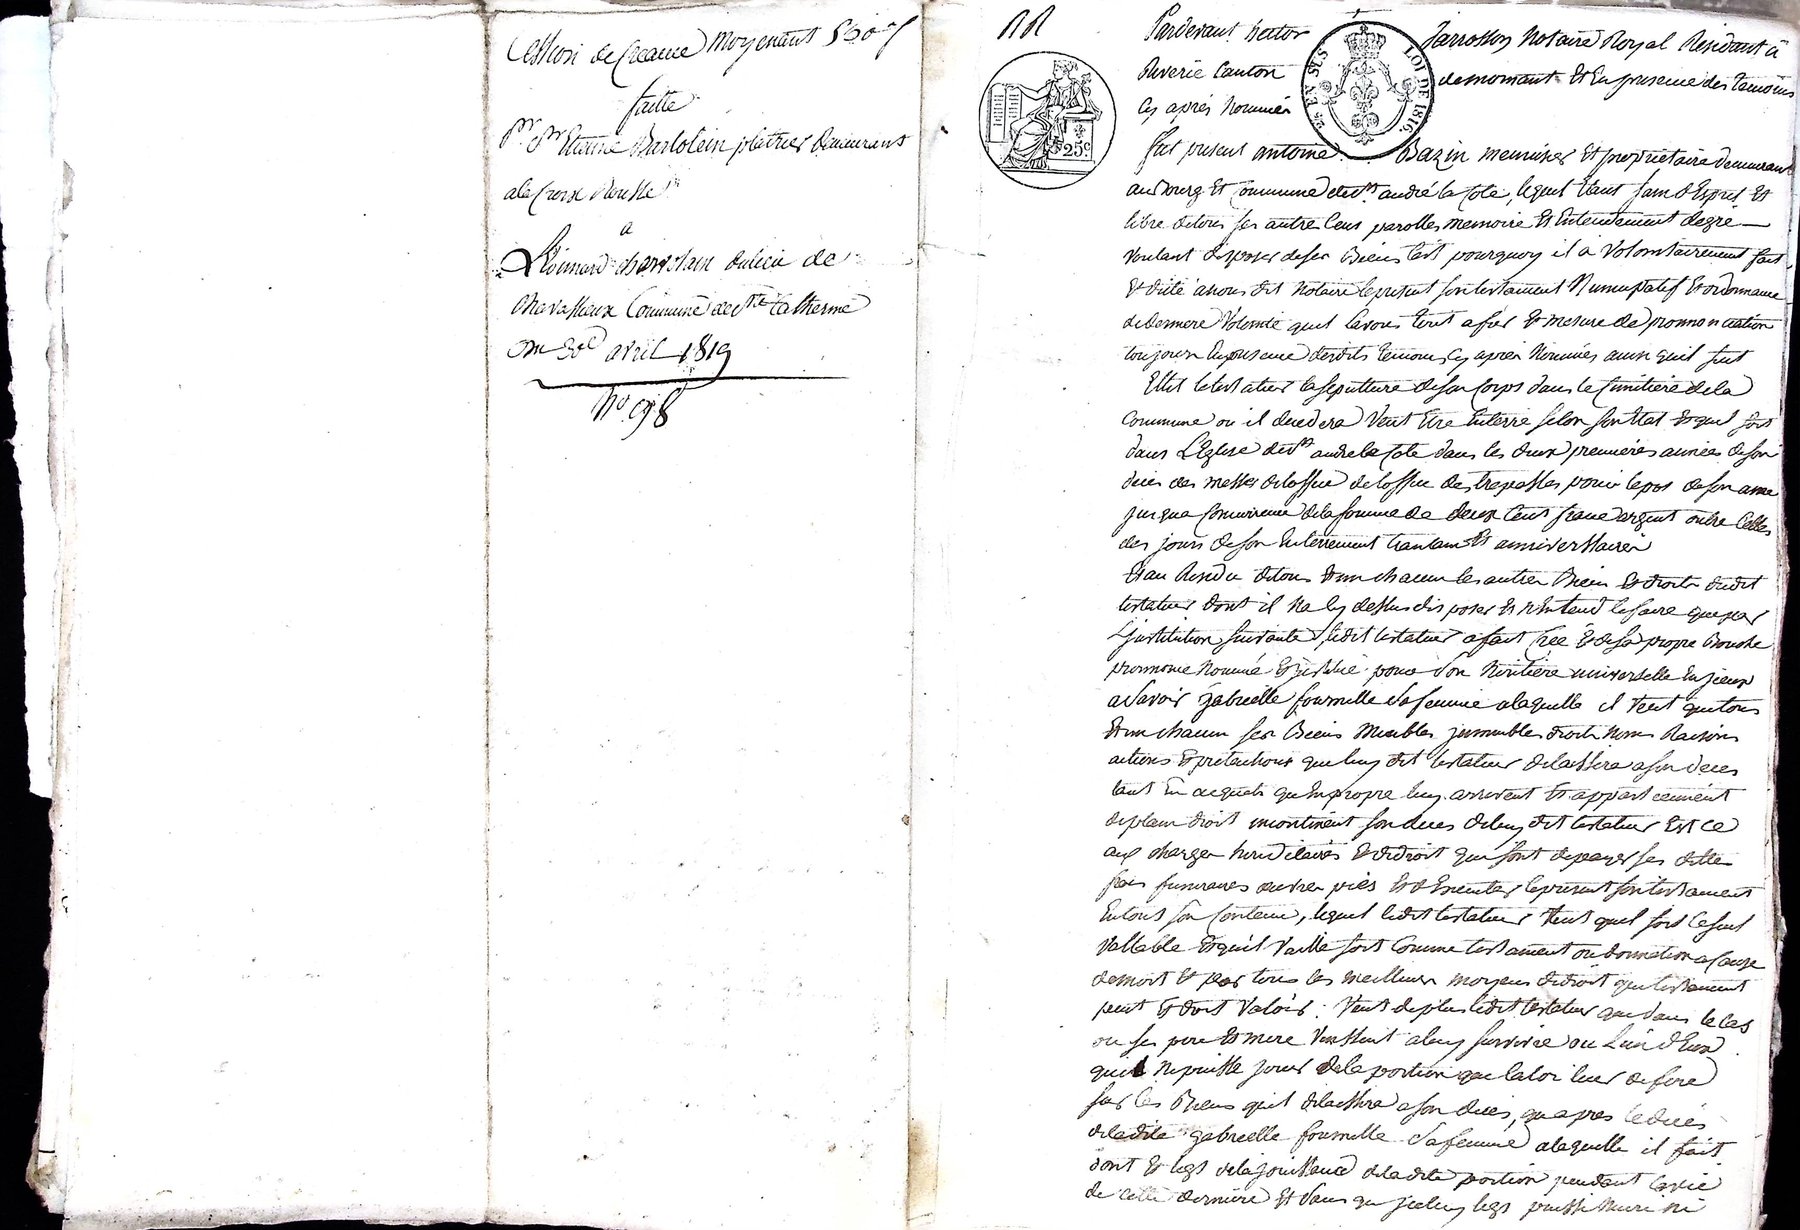 Cession de Creance Moyenant 560 f
faitte
Pr. Sr Etienne Barlolein platrier demeurant
a la Croix Rousse
a
Léonard charvolain dulieu de
Chavasseux Commune de Ste Catherine
Du 30e avril 1819
No. 98
Pardevant hector Jarrosson Notaire Royal Résidant à
Riverie Canton de mornant Et En presence des temoins
Cy aprés Nommés
Fut present antoine Bazin menuisier Et propriétaire demeurant
au Bourg Et Commune de St andré la Cote, lequel Etant sain d'Esprit Et
libre de tous ses autres sens parolles memoire Et Entendement de gré
Voulant disposer de ses Biens C'est pourquoy il a Volontairement fait
Et dicté a nous dit Notaire le present son testament Nuncupatif Et ordonnance
de derniere Volonté quil lavons Ecrit a fur Et mesure de prononciation
toujours En presence desdits temoins Cy aprés Nommés ainsi quil suit
Elit le testateur la sepulture de son Corps dans le Cimitiere de la
Commune ou il decedera Veut Etre Enterré selon son Etat Et quil soit
dans L'Eglise de St andré la Cote dans les deux premieres années de son
décés des messes de loffice des trepassés pour le repos de son ame
jusqua Concurrence de la somme de deux Cent franc argent outre Celles
des jours de son Enterrement trantain Et anniversaire
Et au Residu de tous Et un chacun les autres Biens Et droits dudit
testateur dont il Na Cy dessus disposer Et N'Entend le faire que par
L'justitution suivante, ledit testateur a fait Créé Et de sa propre Bouche
prononcé Nommé Et justitué pour son héritiere universelle En jceux
a Savoir gabrielle fournille Sa femme a laquelle il Veut que tous
Et un chacun ses Biens Meubles jmmeubles droits Noms Raisons
actions Et pretentions que luy dit testateur delaissera a son deces
tant En acquets qu'En propre luy arrivent Et appartiennent
de plain droit incontinent son deces de luy dit testateur Et Ce
aux charges héréditaires Et de droit qui sont de payer ses dettes
frais funeraires Et d'Executer le present son testament
En tout son Contenu, lequel ledit testateur Veut quil soit Ce seul
Vallable Et quil Vaille soit Comme testament ou donnation a Cause
de mort Et par tous les meilleurs moyens de droit que testament
peut Et doit Valoir. Veut de plus ledit testateur que dans le Cas
ou ses pere Et mere Vinssent a luy survivre ou L'un d'Eux
quil Ne puisse jouir de la portion que la loi leur defere
sur les Biens quil delaissera a son décés, qu'apres le décés
de ladite gabrielle fournille Sa femme a laquelle il fait
dont Et legs de la jouissance de ladite portion pendant la vie
de Cette derniere Et sans que jceluy legs puisse Nuire ni
25 c
25 EN SUS
LOI DE 1816.